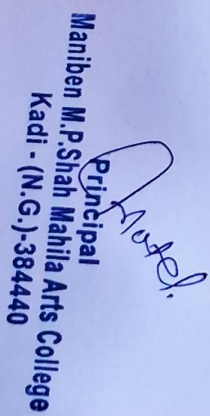 Principal
Maniben M.P.Shah Mahila Arts College
Kadi - (N.G.)-384440